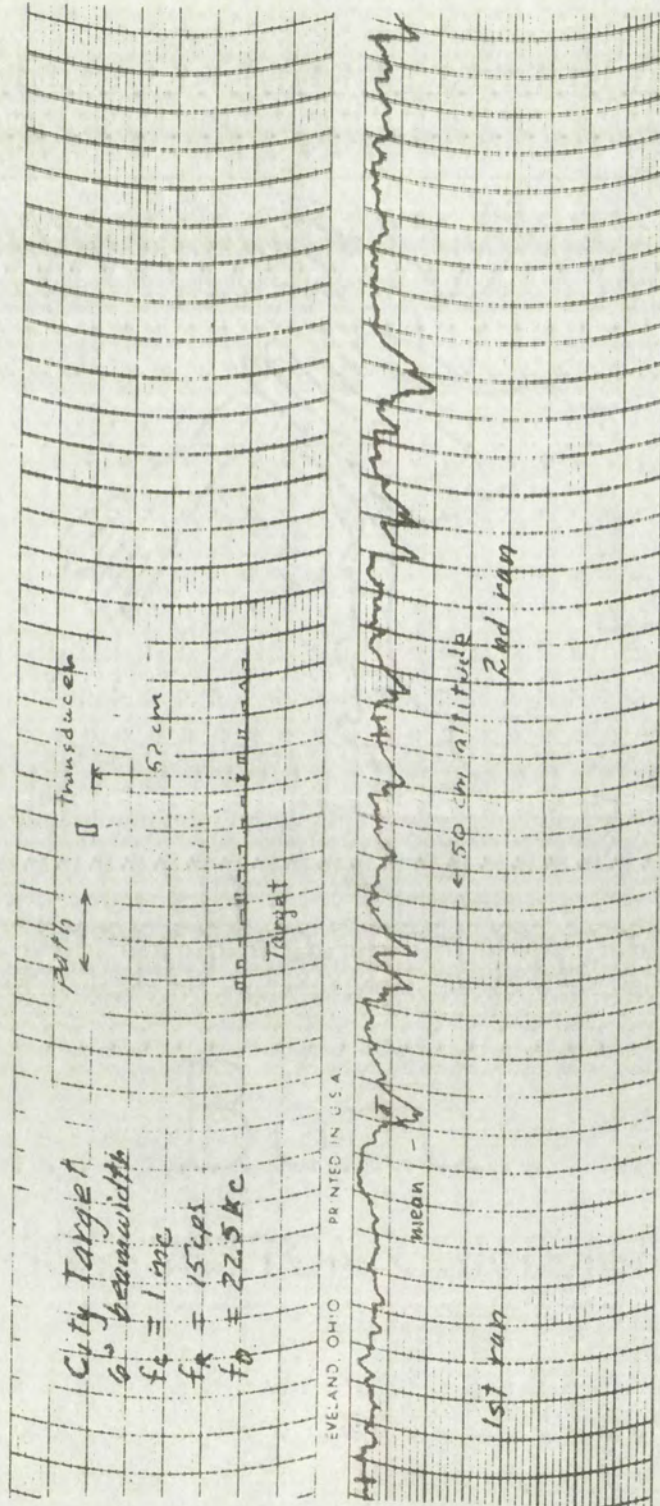 City Target
6° beamwidth
fc = 1 mc
fR = 15 cps
fD = 22.5 kc
path
← →
Transducer
52 cm
Target
EVELAND, OHIO PRINTED IN U.S.A.
mean
← 50 cm altitude
1st ran
2nd ran